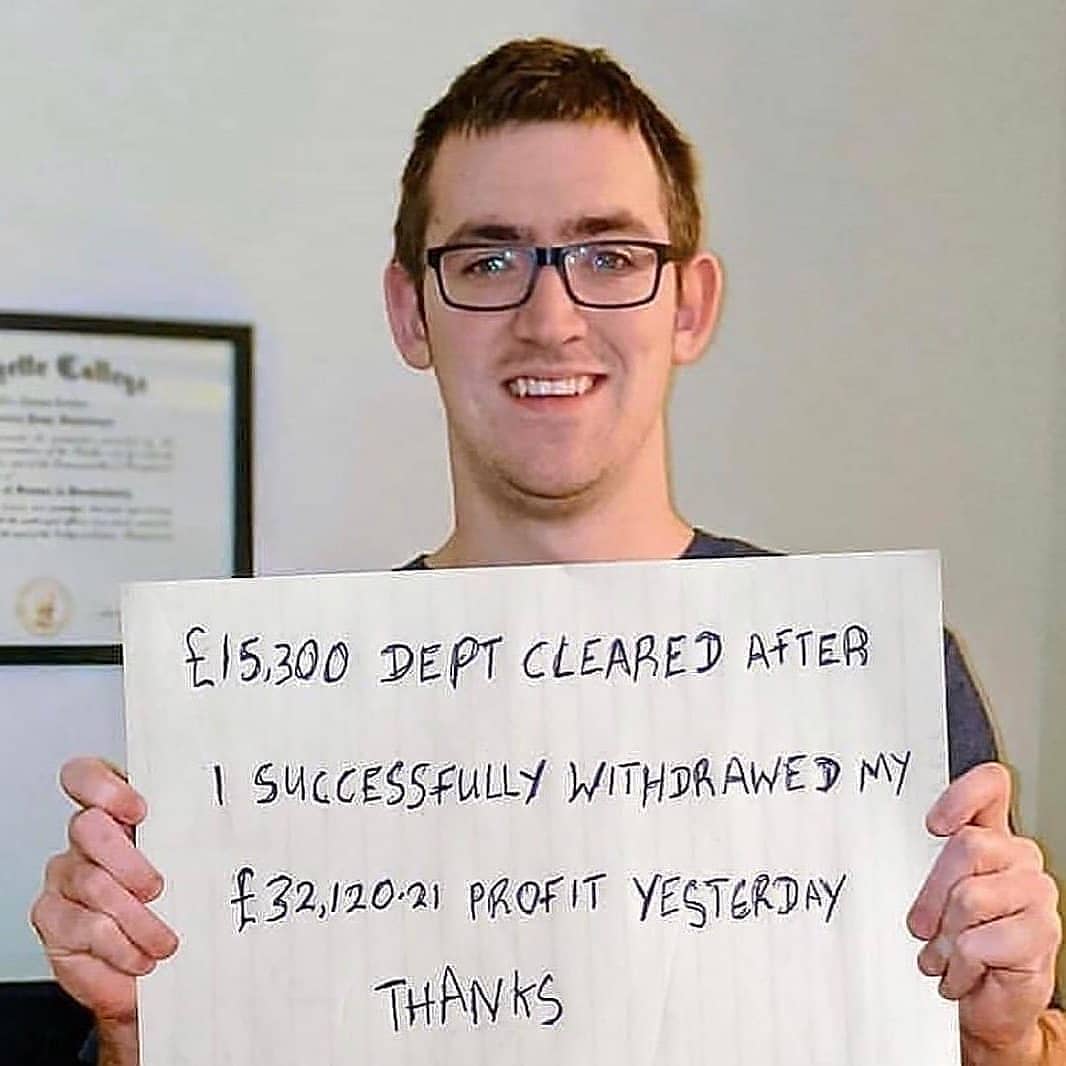 College
£15,300 DEPT CLEARED AFTER
I SUCCESSFULLY WITHDRAWED MY
£32,120.21 PROFIT YESTERDAY
THANKS